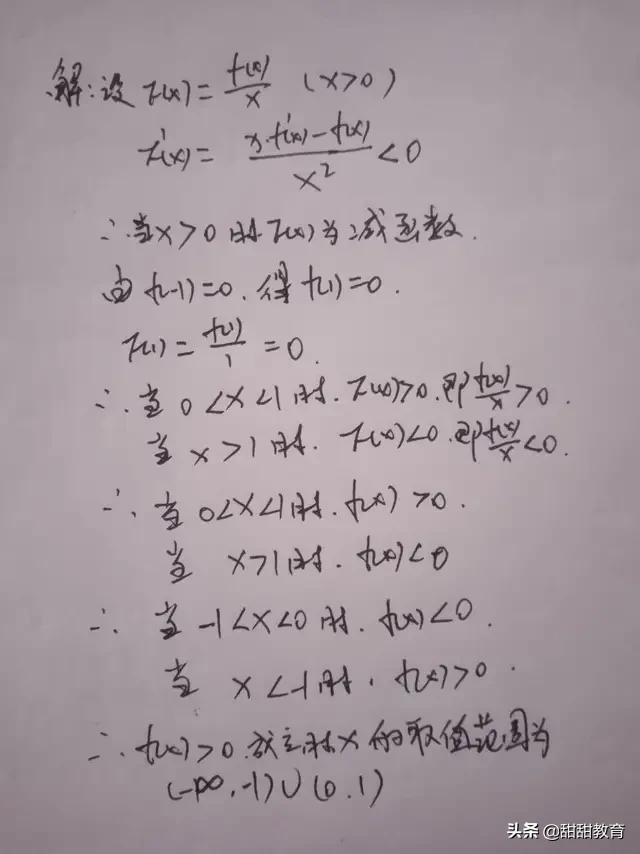 解:设 F(x) = f(x)/x (x>0)
F'(x) = (x·f'(x) - f(x))/x² < 0
∴当x>0时F(x)为减函数.
由 f(-1)=0. 得 f(1)=0.
F(1) = f(1)/1 = 0.
∴当 0<x<1时. F(x)>0. 即f(x)/x>0.
当 x>1时. F(x)<0. 即f(x)/x<0.
∴当 0<x<1时. f(x)>0.
当 x>1时. f(x)<0
∴当 -1<x<0时. f(x)<0.
当 x<-1时. f(x)>0.
∴f(x)>0. 成立时x的取值范围为
(-∞,-1)∪(0,1)
头条 @甜甜教育